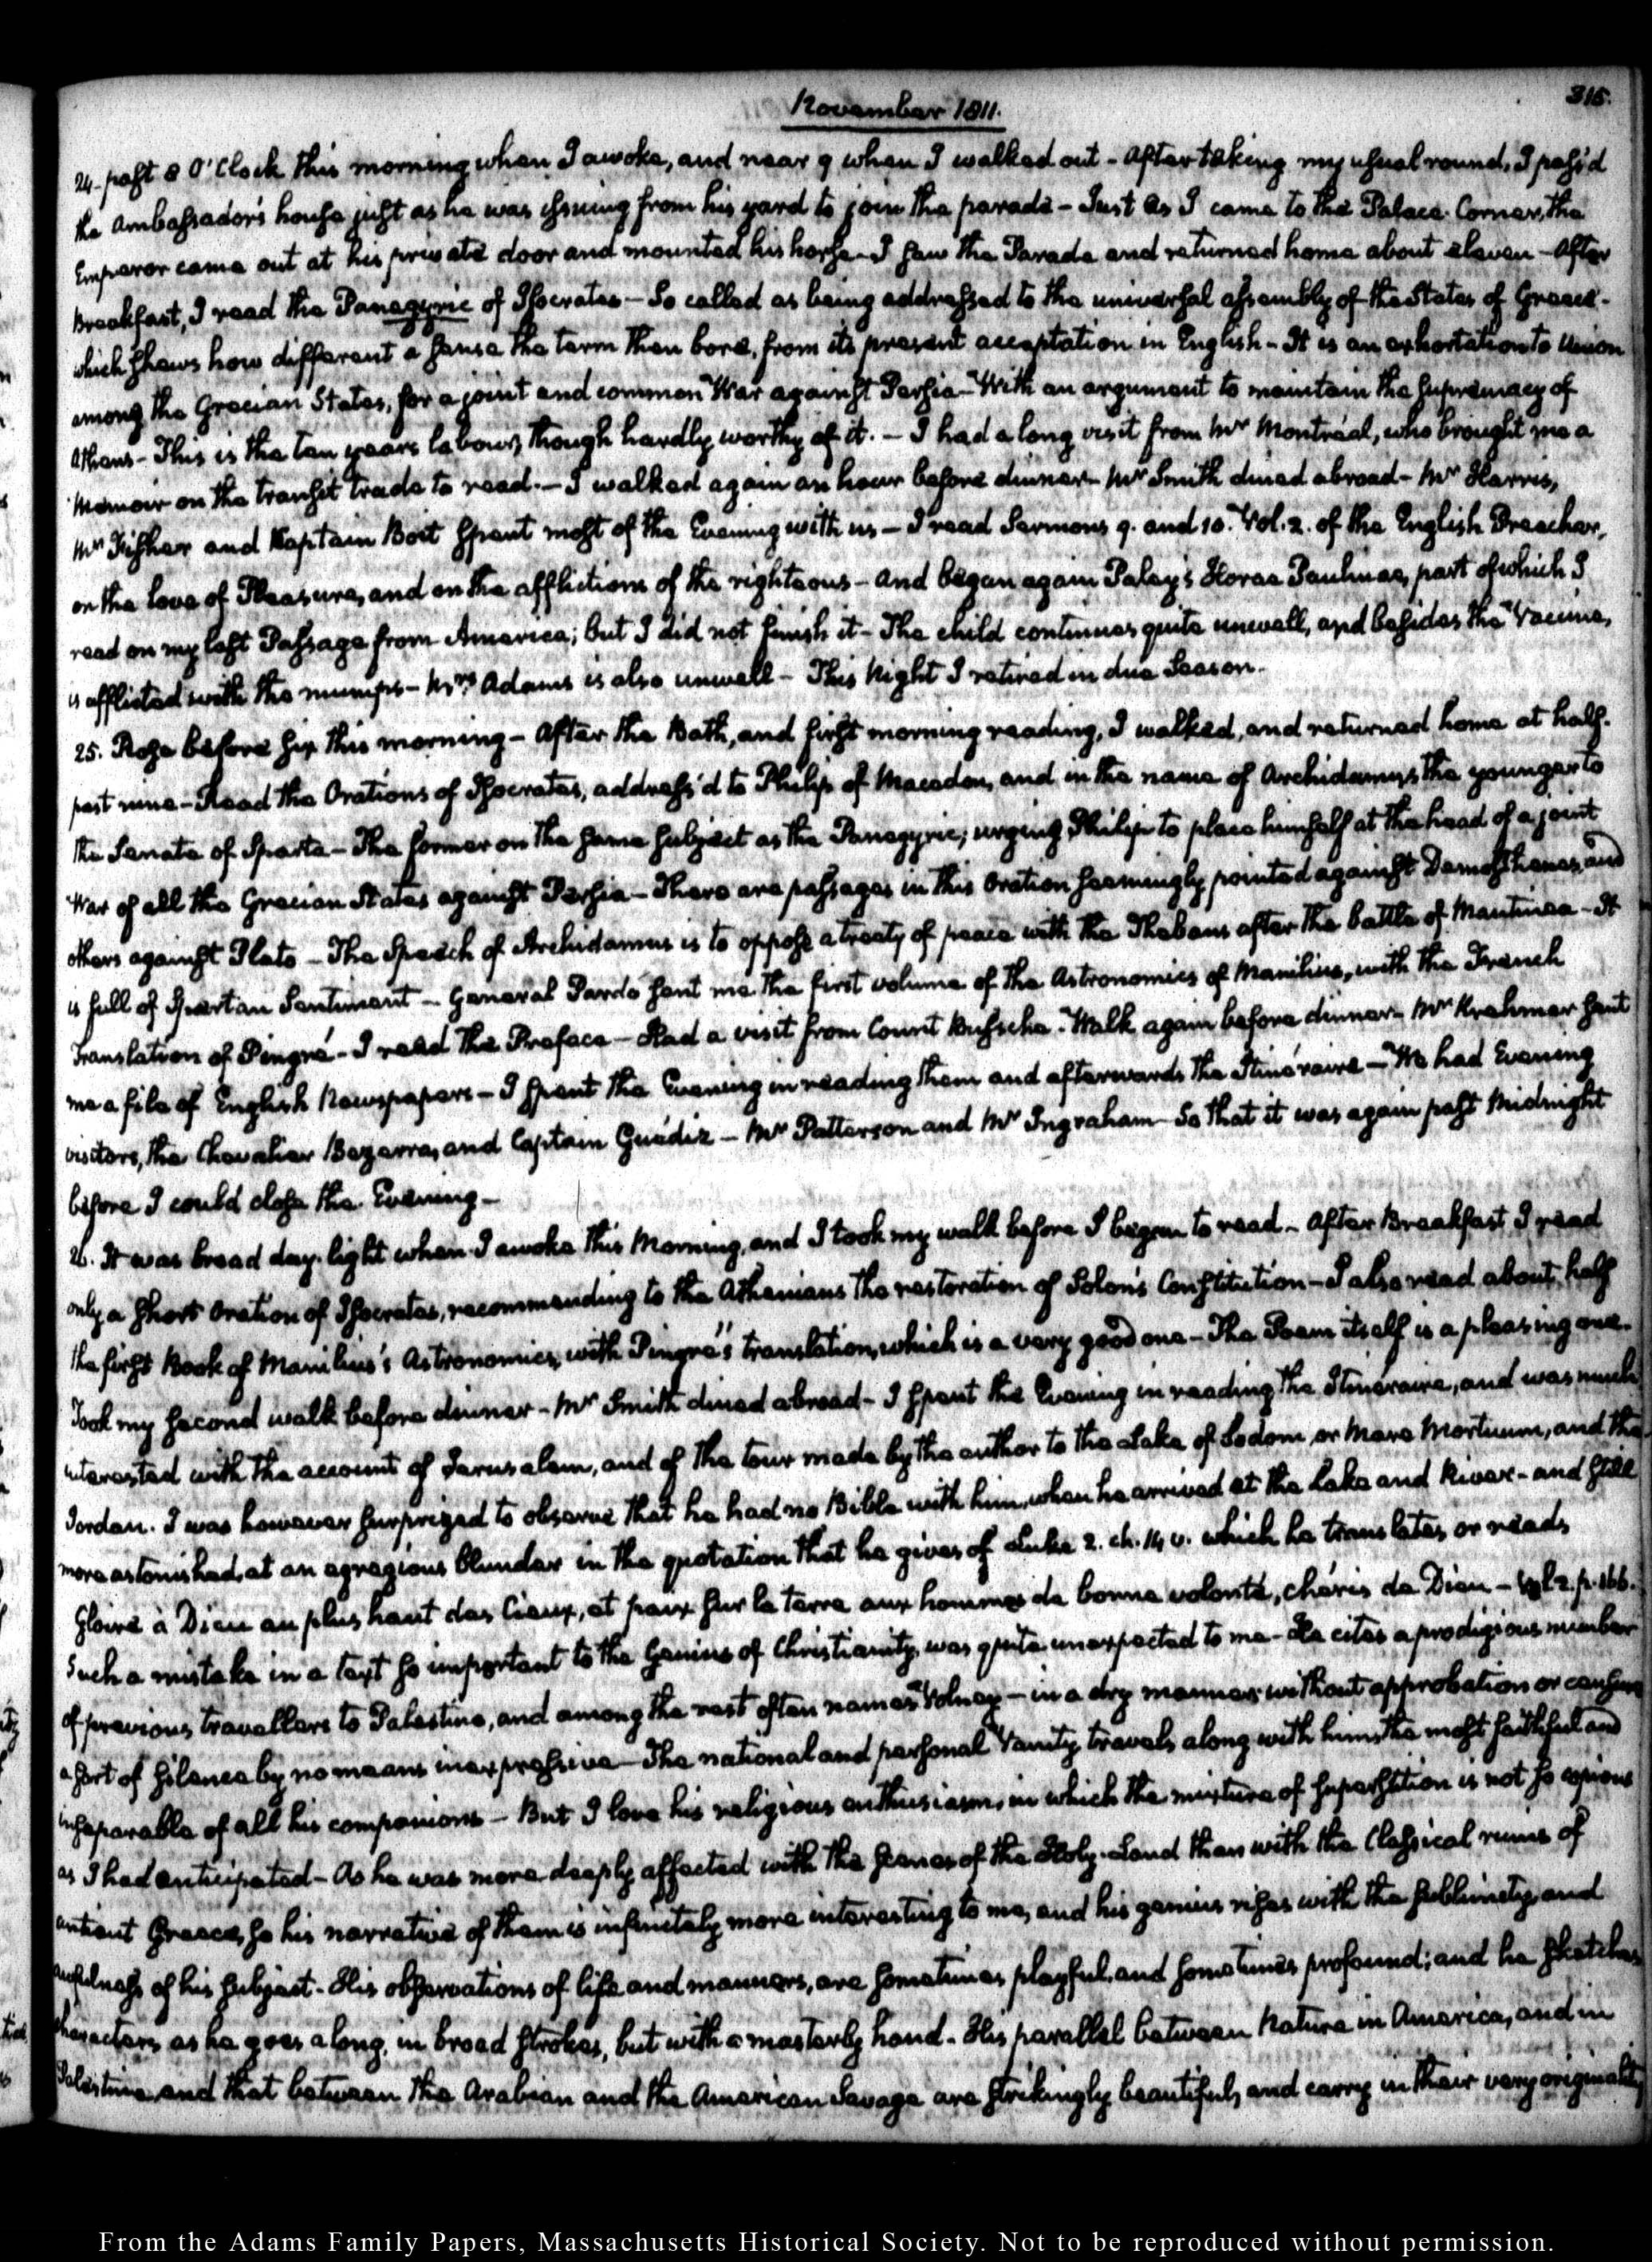 November 1811.
315.
24. past 8 O'Clock this morning when I awoke, and near 9 when I walked out - After taking my usual round, I pass'd
the Ambassador's house just as he was issuing from his yard to join the parade - Just as I came to the Palace Corner, the
Emperor came out at his private door and mounted his horse - I saw the Parade and returned home about eleven - After
Breakfast, I read the Panegyric of Isocrates - So called as being addressed to the universal assembly of the States of Greece -
which shews how different a sense the term then bore, from its present acceptation in English - It is an exhortation to Union
among the Grecian States, for a joint and common War against Persia - With an argument to maintain the supremacy of
Athens - This is the ten years labour, though hardly worthy of it. - I had a long visit from Mr Montréal, who brought me a
Memoir on the transit trade to read. - I walked again an hour before dinner - Mr Smith dined abroad - Mr Harris,
Mr Fisher and Captain Boit spent most of the Evening with us - I read Sermons 9. and 10. Vol. 2. of the English Preacher,
on the love of Pleasure, and on the afflictions of the righteous - And began again Paley's Horae Paulinae, part of which I
read on my last Passage from America; but I did not finish it - The child continues quite unwell, and besides the Vaccine,
is afflicted with the mumps - Mrs Adams is also unwell - This Night I retired in due Season.
25. Rose before six this morning - After the Bath, and first morning reading, I walked, and returned home at half-
past nine - Read the Orations of Isocrates, address'd to Philip of Macedon, and in the name of Archidamus the younger to
the Senate of Sparta - The former on the same subject as the Panegyric; urging Philip to place himself at the head of a joint
War of all the Grecian States against Persia - There are passages in this Oration seemingly pointed against Demosthenes, and
others against Plato - The Speech of Archidamus is to oppose a treaty of peace with the Thebans after the battle of Mantinea - It
is full of Spartan Sentiment - General Pardo sent me the first volume of the Astronomics of Manilius, with the French
Translation of Pingré - I read the Preface - Had a visit from Count Bussche - Walk again before dinner - Mr Krehmer sent
me a file of English Newspapers - I spent the Evening in reading them and afterwards the Itinéraire - We had Evening
visitors, the Chevalier Bezerra, and Captain Guédiz - Mr Patterson and Mr Ingraham - So that it was again past Midnight
before I could close the Evening -
26. It was broad day-light when I awoke this Morning, and I took my walk before I began to read - After Breakfast I read
only a short Oration of Isocrates, recommending to the Athenians the restoration of Solon's Constitution - I also read about half
the first Book of Manilius's Astronomics, with Pingré's translation, which is a very good one - The Poem itself is a pleasing one.
Took my second walk before dinner - Mr Smith dined abroad - I spent the Evening in reading the Itinéraire, and was much
interested with the account of Jerusalem, and of the tour made by the author to the Lake of Sodom, or Mare Mortuum, and the
Jordan. I was however surprized to observe that he had no Bible with him, when he arrived at the Lake and River - and still
more astonished, at an egregious blunder in the quotation that he gives of Luke 2. ch. 14 v. which he translates, or reads
Gloire à Dieu au plus haut des Cieux, et paix sur la terre aux hommes de bonne volonté, chéris de Dieu - Vol 2. p. 166.
Such a mistake in a text so important to the Genius of Christianity, was quite unexpected to me - He cites a prodigious number
of previous travellers to Palestine, and among the rest often names Volney - in a dry manner without approbation or censure
a sort of silence by no means inexpressive - The national and personal Vanity travels along with him, the most faithful and
inseparable of all his companions - But I love his religious enthusiasm, in which the mixture of superstition is not so copious
as I had anticipated - As he was more deeply affected with the scenes of the Holy-Land than with the Classical ruins of
antient Greece, so his narrative of them is infinitely more interesting to me, and his genius rises with the sublimity, and
awfulness of his subject - His observations of life and manners, are sometimes playful, and sometimes profound; and he sketches
characters as he goes along, in broad strokes, but with a masterly hand - His parallel between Nature in America, and in
Palestine, and that between the Arabian and the American Savage are strikingly beautiful, and carry in their very originality
From the Adams Family Papers, Massachusetts Historical Society. Not to be reproduced without permission.